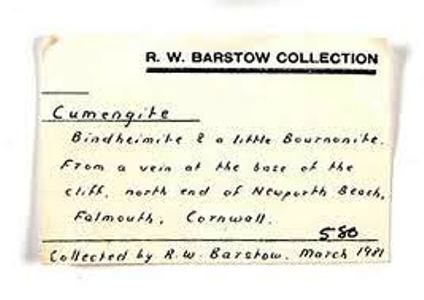 R. W. BARSTOW COLLECTION
Cumengite
Bindheimite & a little Bournonite.
From a vein at the base of the
cliff, north end of Newporth Beach,
Falmouth, Cornwall.
580
Collected by R.W. Barstow. March 1981